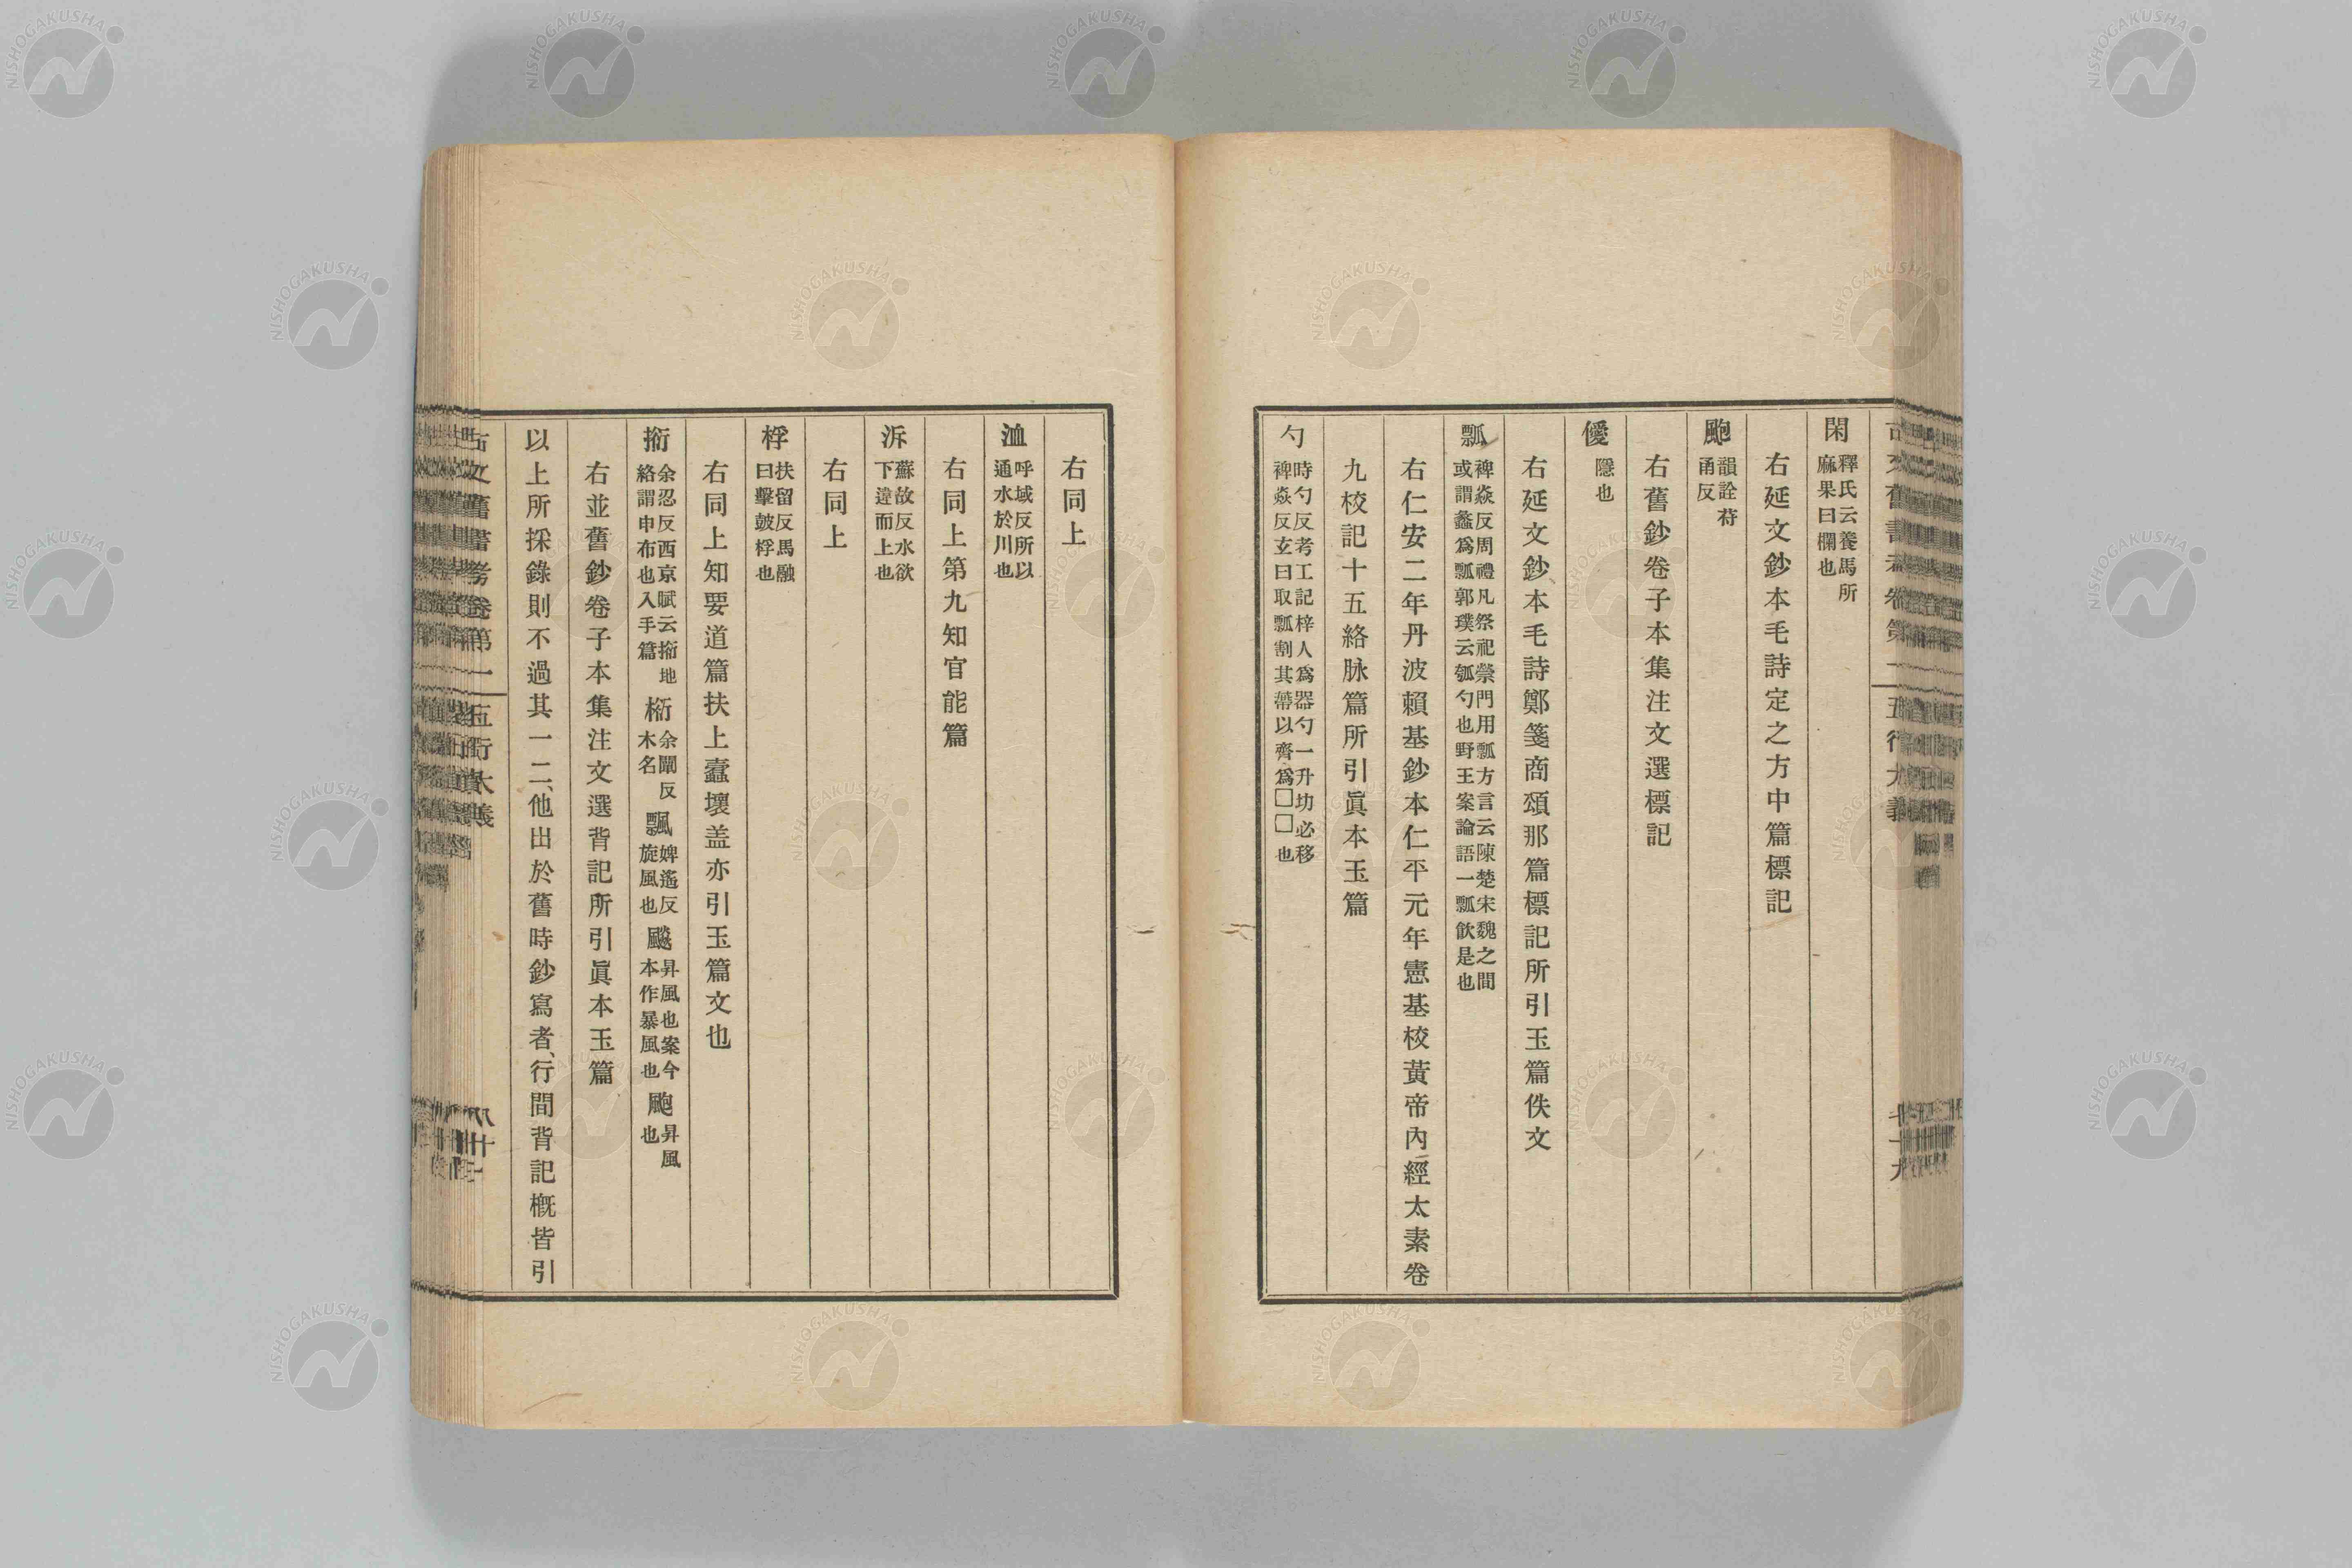 閑 釋氏云養馬所麻果曰欄也
右延文鈔本毛詩定之方中篇標記
颮 韻詮苻甬反
右舊鈔卷子本集注文選標記
僾 隱也
右延文鈔本毛詩鄭箋商頌那篇標記所引玉篇佚文
瓢 裨焱反周禮凡祭祀禜門用瓢方言云陳楚宋魏之間或謂蠡爲瓢郭璞云瓠勺也野王案論語一瓢飲是也
右仁安二年丹波賴基鈔本仁平元年憲基校黃帝內經太素卷
九校記十五絡脉篇所引眞本玉篇
勺 時勺反考工記梓人爲器勺一升㓛必移裨焱反玄曰取瓢割其蔕以齊爲□□也
右同上
洫 呼域反所以通水於川也
右同上第九知官能篇
泝 蘇故反水欲下違而上也
右同上
桴 扶留反馬融曰擊皷桴也
右同上知要道篇扶上蠹壞盖亦引玉篇文也
𢮍 余忍反西京賦云𢮍地絡謂申布也入手篇 𣐺 余闡反木名 飄 婢遙反旋風也 飈 昇風也案今本作暴風也 颮 昇風也
右並舊鈔卷子本集注文選背記所引眞本玉篇
以上所採錄則不過其一二、他出於舊時鈔寫者、行間背記概皆引
古文舊書考卷第一 五行大義
NISHOGAKUSHA